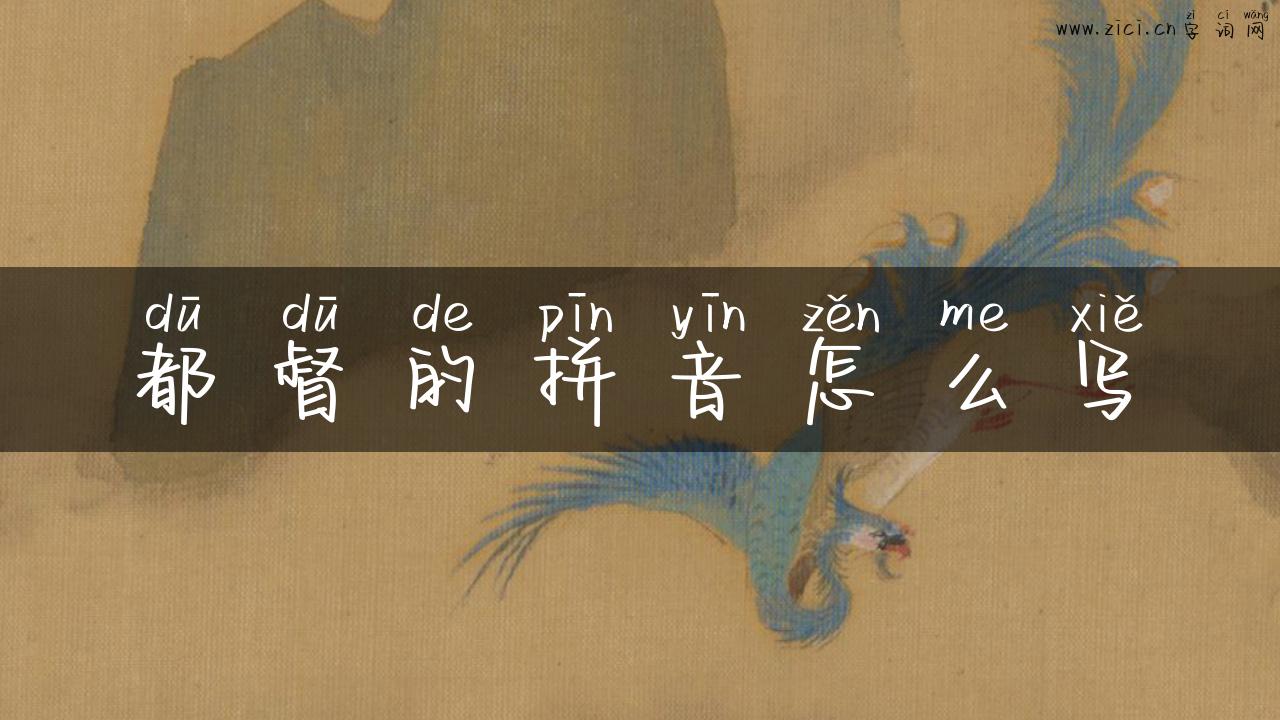 zì cí wǎng
www.zici.cn字词网
dū dū de pīn yīn zěn me xiě
都督的拼音怎么写